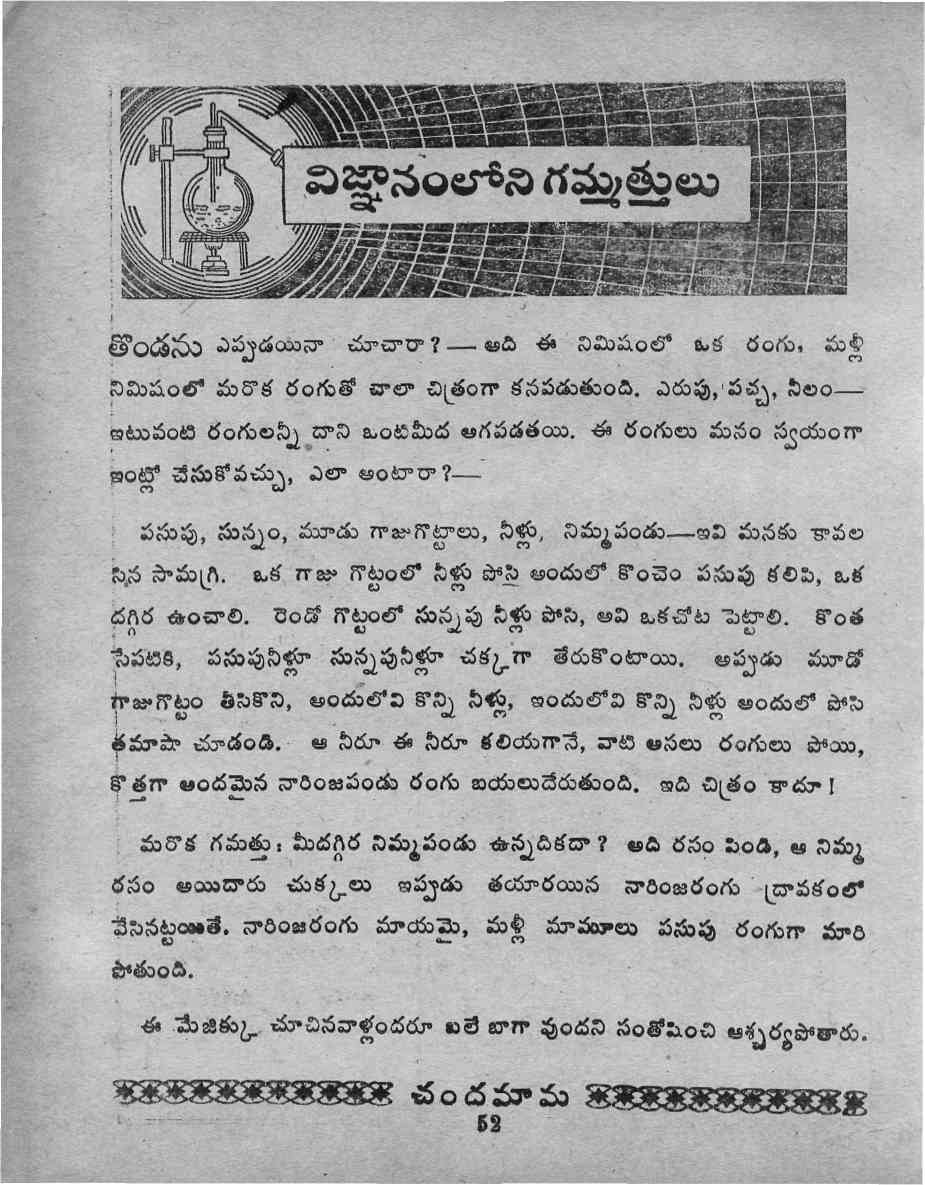 విజ్ఞానంలోని గమ్మత్తులు
తొండను ఎప్పుడయినా చూచారా? — అది ఈ నిమిషంలో ఒక రంగు, మళ్లీ
నిమిషంలో మరొక రంగుతో చాలా చిత్రంగా కనపడుతుంది. ఎరుపు, పచ్చ, నీలం—
ఇటువంటి రంగులన్నీ దాని ఒంటిమీద ఆగపడతయి. ఈ రంగులు మనం స్వయంగా
ఇంట్లో చేసుకోవచ్చు, ఎలా అంటారా?—
పసుపు, సున్నం, మూడు గాజుగొట్టాలు, నీళ్లు, నిమ్మపండు—ఇవి మనకు కావల
స్సిన సామగ్రి. ఒక గాజు గొట్టంలో నీళ్లు పోసి అందులో కొంచెం పసుపు కలిపి, ఒక
దగ్గిర ఉంచాలి. రెండో గొట్టంలో సున్నపు నీళ్లు పోసి, అవి ఒకచోట పెట్టాలి. కొంత
సేపటికి, పసుపునీళ్లూ సున్నపునీళ్లూ చక్కగా తేరుకొంటాయి. అప్పుడు మూడో
గాజుగొట్టం తీసికొని, అందులోవి కొన్ని నీళ్లు, ఇందులోవి కొన్ని నీళ్లు అందులో పోసి
తమాషా చూడండి. ఆ నీరూ ఈ నీరూ కలియగానే, వాటి అసలు రంగులు పోయి,
కొత్తగా అందమైన నారింజపండు రంగు బయలుదేరుతుంది. ఇది చిత్రం కాదూ!
మరొక గమత్తు: మీదగ్గిర నిమ్మపండు ఉన్నదికదా? అది రసం పిండి, ఆ నిమ్మ
రసం అయిదారు చుక్కలు ఇప్పుడు తయారయిన నారింజరంగు ద్రావకంలో
వేసినట్టయితే. నారింజరంగు మాయమై, మళ్లీ మామూలు పసుపు రంగుగా మారి
పోతుంది.
ఈ మేజిక్కు చూచినవాళ్లందరూ బలే బాగా వుందని సంతోషించి ఆశ్చర్యపోతారు.
చందమామ
52